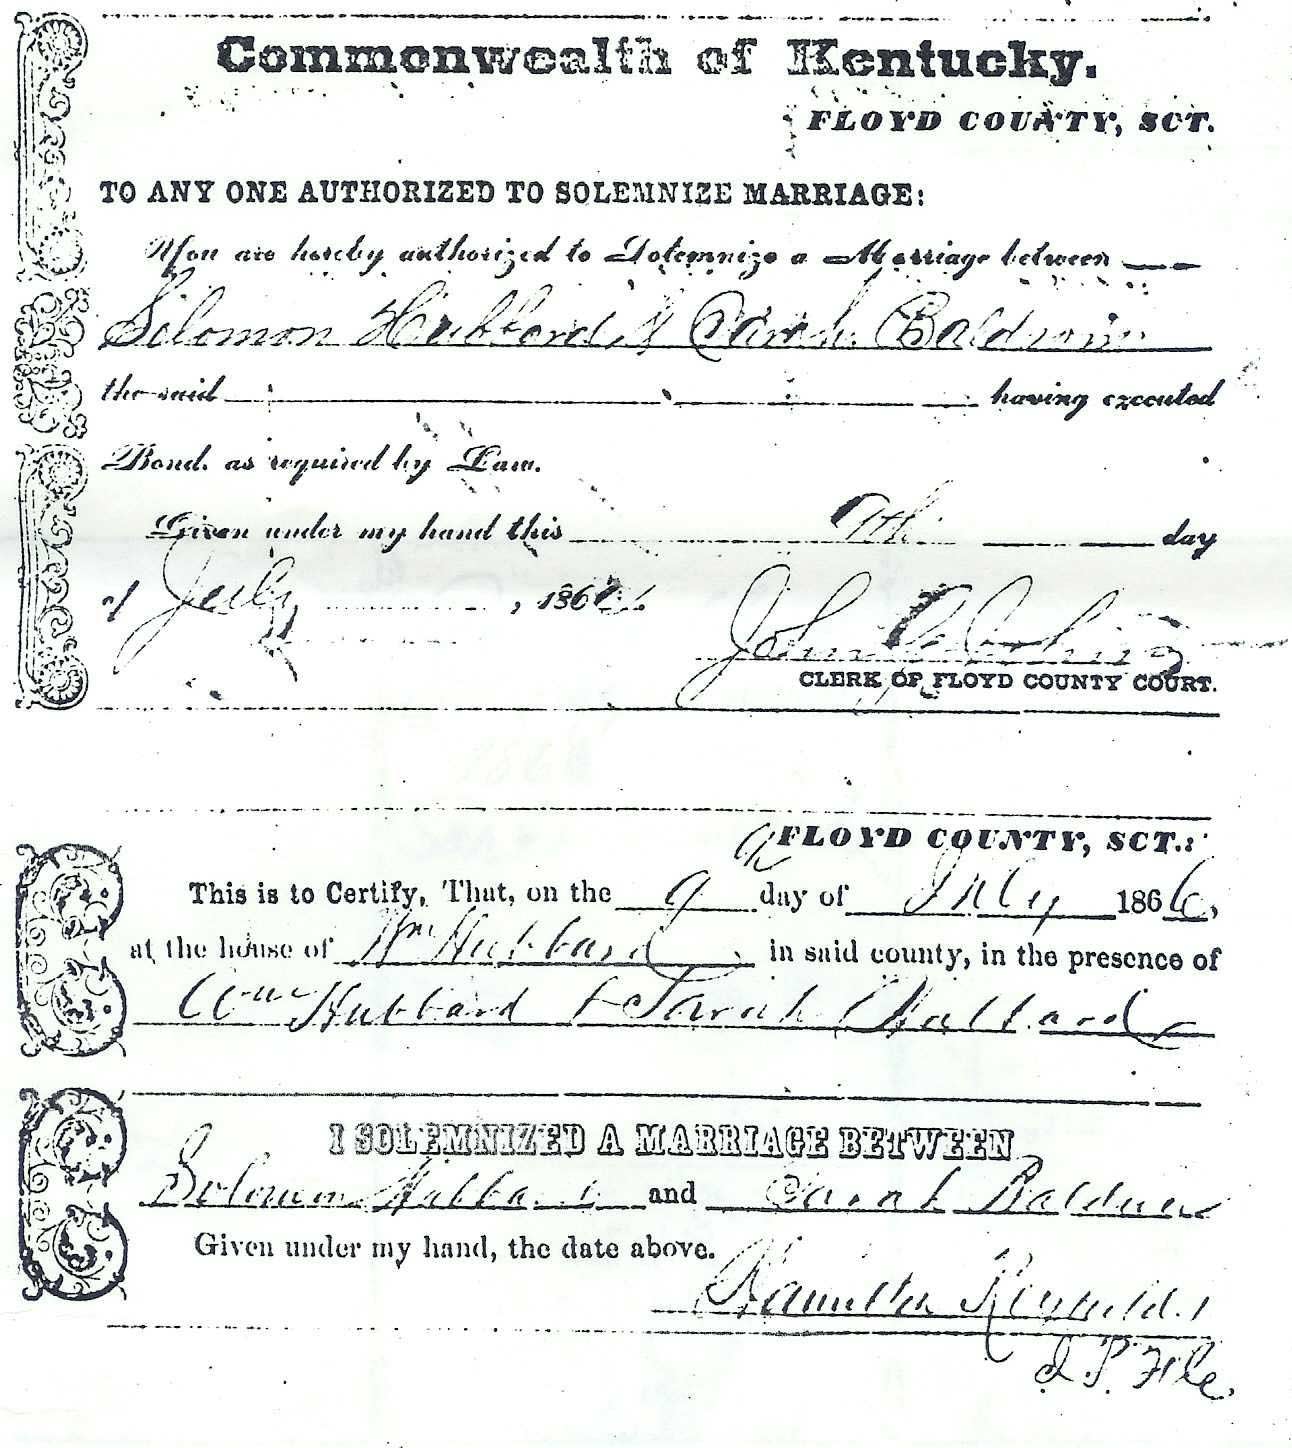 Commonwealth of Kentucky.
FLOYD COUNTY, SCT.
TO ANY ONE AUTHORIZED TO SOLEMNIZE MARRIAGE:
You are hereby authorized to Solemnize a Marriage between
Solomon Hubbard & Sarah Baldwin
the said having executed
Bond, as required by Law.
Given under my hand this 9th day
of July , 186
John
CLERK OF FLOYD COUNTY COURT.
FLOYD COUNTY, SCT.:
This is to Certify, That, on the 9 day of July 1866,
at the house of Wm Hubbard in said county, in the presence of
Wm Hubbard & Sarah Hubbard
I SOLEMNIZED A MARRIAGE BETWEEN
Solomon Hubbard and Sarah Baldwin
Given under my hand, the date above.
Hamilton Reynolds
J. P. F.